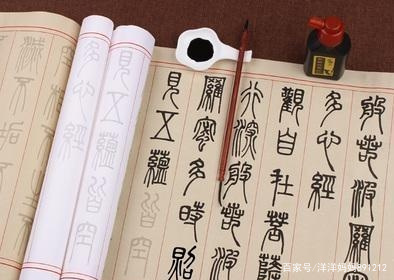 般若波羅蜜
多心經
觀自在菩薩
行深般若波
羅蜜多時照
見五蘊
見五蘊皆空
多心經
滅不垢不
百家号/洋洋妈妈891212